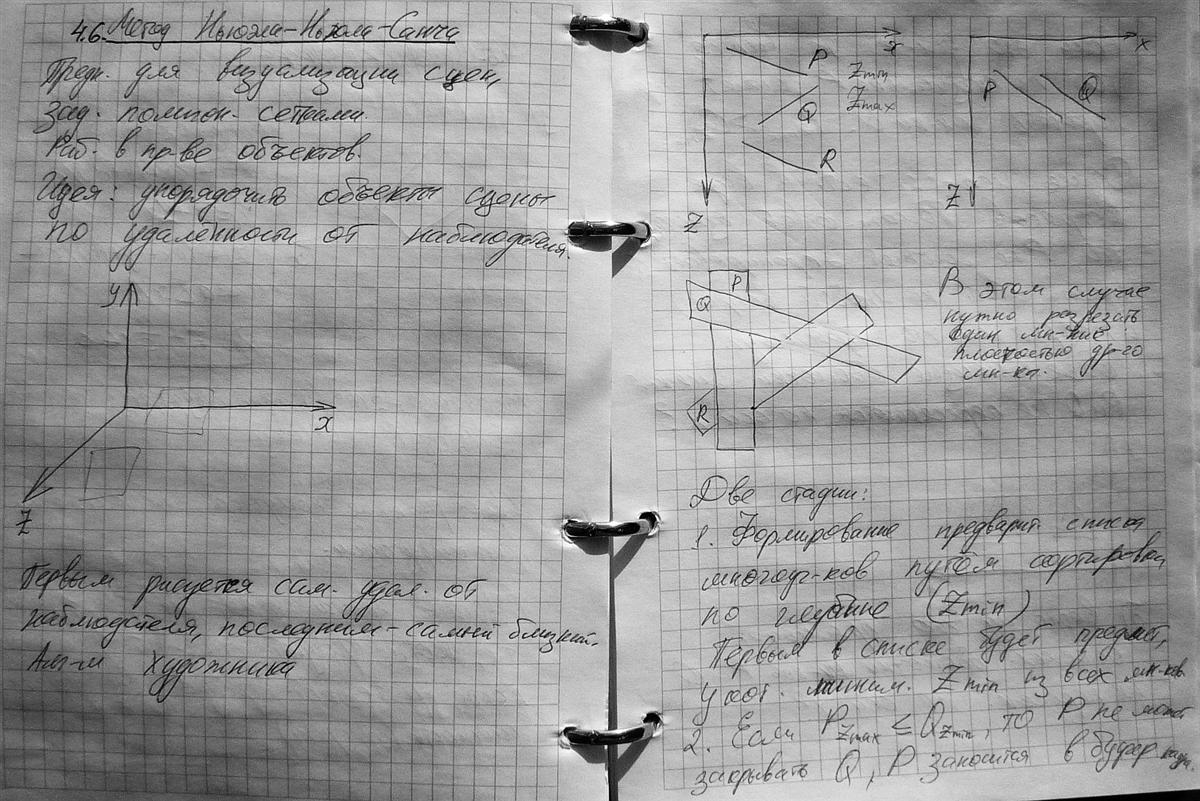 4.6. Метод Ньюэла-Ньюэла-Санча
Предн. для визуализации сцен,
зад. полигон. сетками.
Раб. в пр-ве объектов.
Идея: упорядочить объекты сцены
по удалённости от наблюдателя.
y
x
z
Первым рисуется сам. удал. от
наблюдателя, последним - самый близкий.
Алг-м художника
x
P
Zmin
Zmax
Q
R
Z
x
P
Q
Z
P
Q
R
В этом случае
нужно разрезать
один мн-ник
плоскостью др-го
мн-ка.
Две стадии:
1. Формирование предварит. списка
многоуг-ков путём сортировки
по глубине (Zmin)
Первым в списке будет предмет,
у кот. миним. Zmin из всех мн-ков.
2. Если PZmax ≤ QZmin, то P не может
закрывать Q, P заносится в буфер кадра.